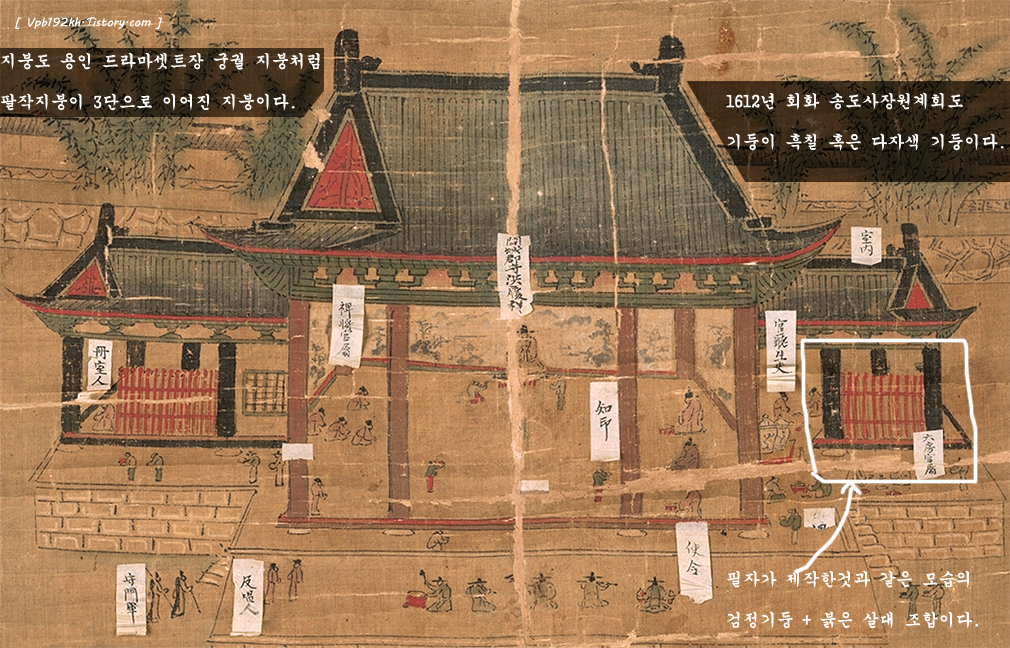 [ Vpb192kh.Tistory.com ]
지붕도 용인 드라마셋트장 궁궐 지붕처럼
팔작지붕이 3단으로 이어진 지붕이다.
1612년 회화 송도사장원계회도
기둥이 흑칠 혹은 다자색 기둥이다.
室内
冊室人
知印
六房官属
使令
守門軍
필자가 제작한것과 같은 모습의
검정기둥 + 붉은 살대 조합이다.